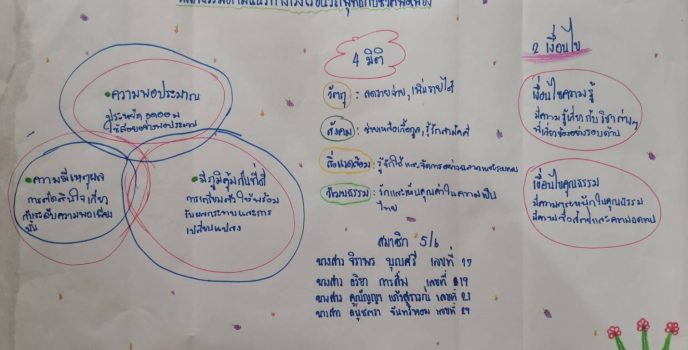 4 มิติ
2 เงื่อนไข
ความพอประมาณ
ประหยัด อดออม
ใช้สอยอย่างพอประมาณ
ความมีเหตุผล
การตัดสินใจเกี่ยว
กับระดับความพอเพียง
นั้น
มีภูมิคุ้มกันที่ดี
การเตรียมตัวให้พร้อม
รับผลกระทบและการ
เปลี่ยนแปลง
วัตถุ : ลดรายจ่าย, เพิ่มรายได้
สังคม : ช่วยเหลือเกื้อกูล, รู้รักสามัคคี
สิ่งแวดล้อม : รู้จักใช้และจัดการอย่างฉลาดและรอบคอบ
วัฒนธรรม : รักและเห็นคุณค่าในความเป็น
ไทย
เงื่อนไขความรู้
มีความรู้เกี่ยวกับวิชาต่างๆ
ที่เกี่ยวข้องอย่างรอบด้าน
เงื่อนไขคุณธรรม
มีความตระหนักในคุณธรรม
มีความซื่อสัตย์และความอดทน
สมาชิก 5/6
นางสาว จิราพร บุญศรี เลขที่ 17
นางสาว อริชา การสิม เลขที่ 19
นางสาว เลขที่ 23
นางสาว จันทร์หอม เลขที่ 29